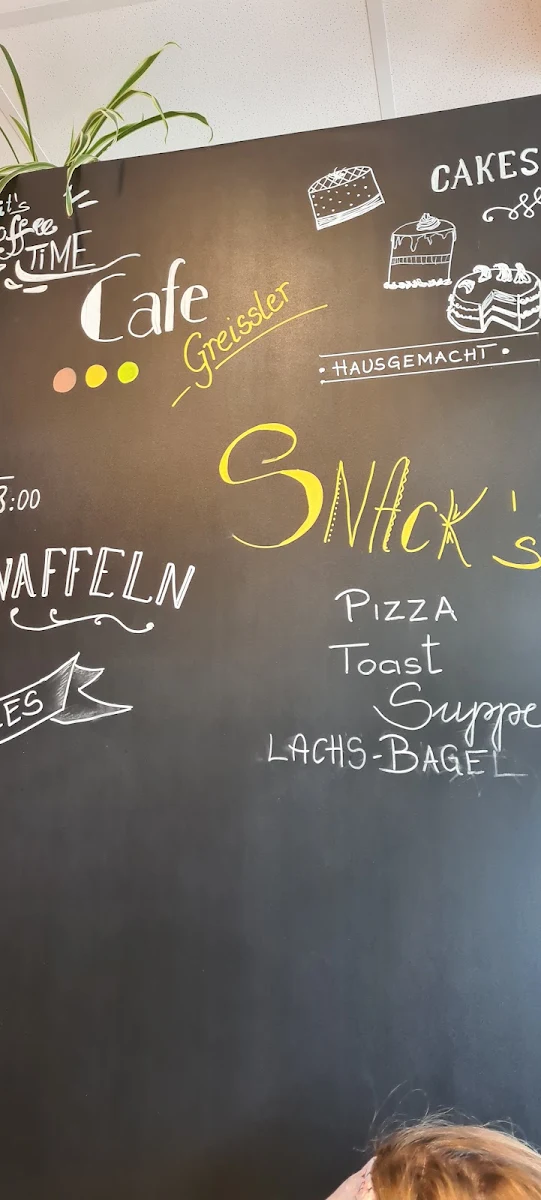 it's
Coffee
TIME
Cafe
Greissler
CAKES
• HAUSGEMACHT •
:00
WAFFELN
SNACK's
PIZZA
Toast
Suppe
LACHS-BAGEL